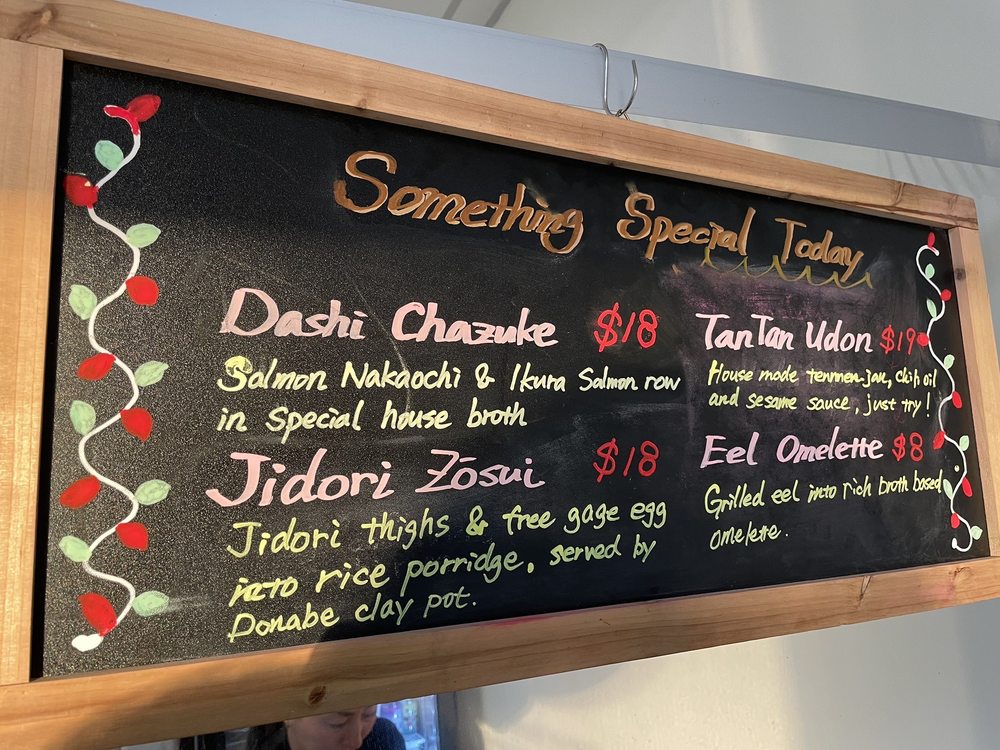 Something Special Today
Dashi Chazuke $18
Salmon Nakaochi & Ikura Salmon row
in special house broth
Jidori Zōsui $18
Jidori thighs & free gage egg
into rice porridge, served by
Donabe clay pot.
TanTan Udon $19
House made tenmen-jan, chili oil
and sesame sauce, just try!
Eel Omelette $8
Grilled eel into rich broth based
omelette.